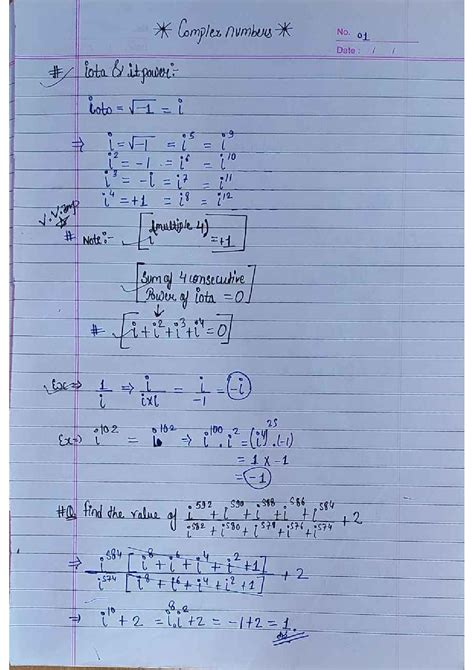 * Complex numbers *
No. 01
Date : / /
# iota & it power:-
iota = √-1 = i
⇒ i = √-1 = i⁵ = i⁹
i² = -1 = i⁶ = i¹⁰
i³ = -i = i⁷ = i¹¹
i⁴ = +1 = i⁸ = i¹²
V.V.imp
# Note:- [i^(multiple 4) = +1]
[Sum of 4 consecutive
Power of iota = 0]
↓
# [i + i² + i³ + i⁴ = 0]
Ex ⇒ 1/i ⇒ i/(i×i) = i/-1 = -i
Ex ⇒ i¹⁰² = i¹⁰² ⇒ i¹⁰⁰ . i² = (i⁴)²⁵ . (-1)
= 1 × -1
= -1
#Q. find the value of (i⁵⁹² + i⁵⁹⁰ + i⁵⁸⁸ + i⁵⁸⁶ + i⁵⁸⁴)/(i⁵⁸² + i⁵⁸⁰ + i⁵⁷⁸ + i⁵⁷⁶ + i⁵⁷⁴) + 2
⇒ i⁵⁸⁴ [i⁸ + i⁶ + i⁴ + i² + 1] / i⁵⁷⁴ [i⁸ + i⁶ + i⁴ + i² + 1] + 2
⇒ i¹⁰ + 2 = i⁸.i² + 2 = -1 + 2 = 1.